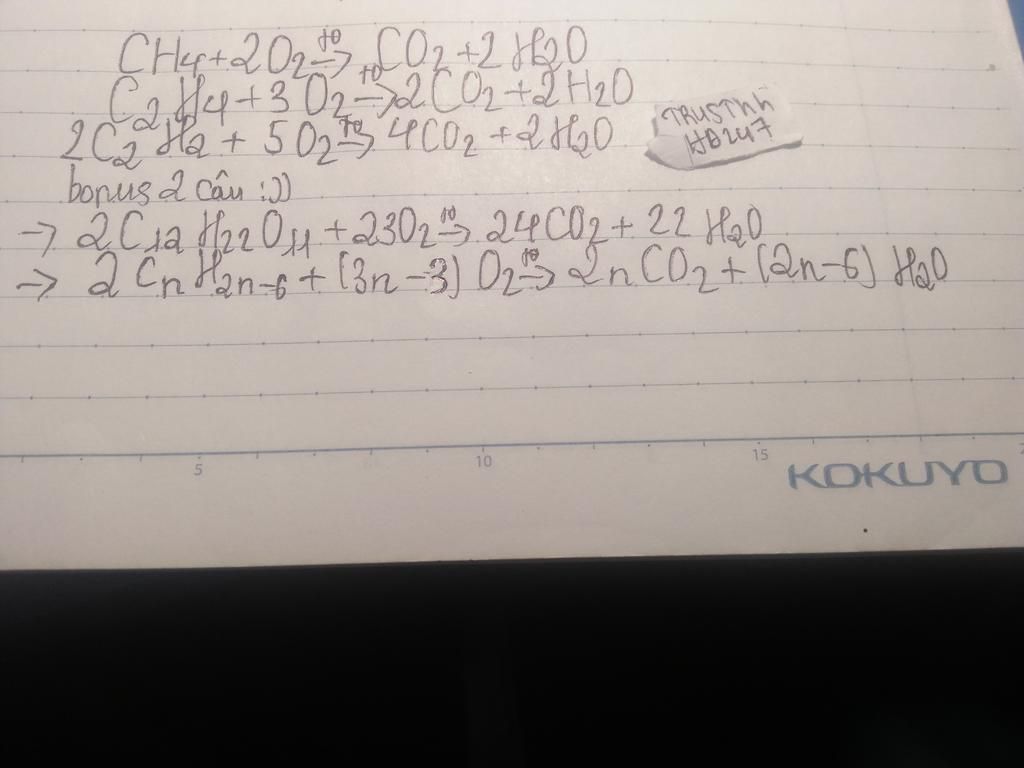 CH4 + 2O2 t0→ CO2 + 2H2O
C2H4 + 3O2 t0→ 2CO2 + 2H2O
2C2H2 + 5O2 t0→ 4CO2 + 2H2O
TRUSThh
HĐ247
bonus 2 câu :))
→ 2C12H22O11 + 23O2 t0→ 24CO2 + 22H2O
→ 2CnH2n-6 + (3n-3) O2 t0→ 2nCO2 + (2n-6) H2O
5 10 15
KOKUYO